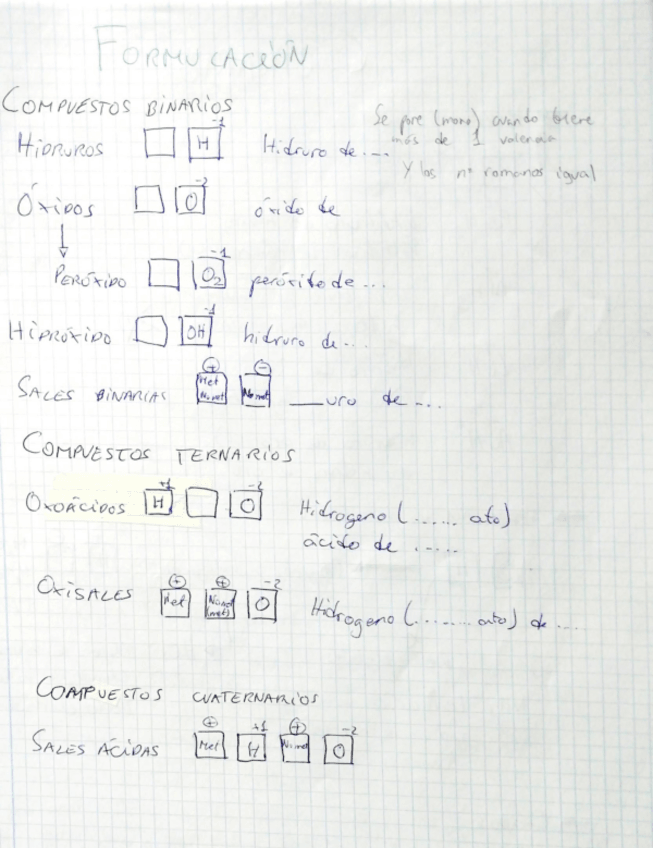 FORMULACIÓN
COMPUESTOS BINARIOS
Se pone (mono) cuando tiene
más de 1 valencia
Y los nº romanos igual
HIDRUROS H -1 Hidruro de ...
ÓXIDOS O -2 óxido de
PERÓXIDO O2 -1 peróxido de ...
HIDRÓXIDO OH -1 hidruro de ...
SALES BINARIAS + Met No met - No met ___uro de ...
COMPUESTOS TERNARIOS
OXOÁCIDOS H +1 O -2 Hidrogeno (...... ato)
ácido de .....
OXISALES + Met + No met (met) O -2 Hidrogeno (....... ato) de ...
COMPUESTOS CUATERNARIOS
SALES ÁCIDAS + Met H +1 + No met O -2